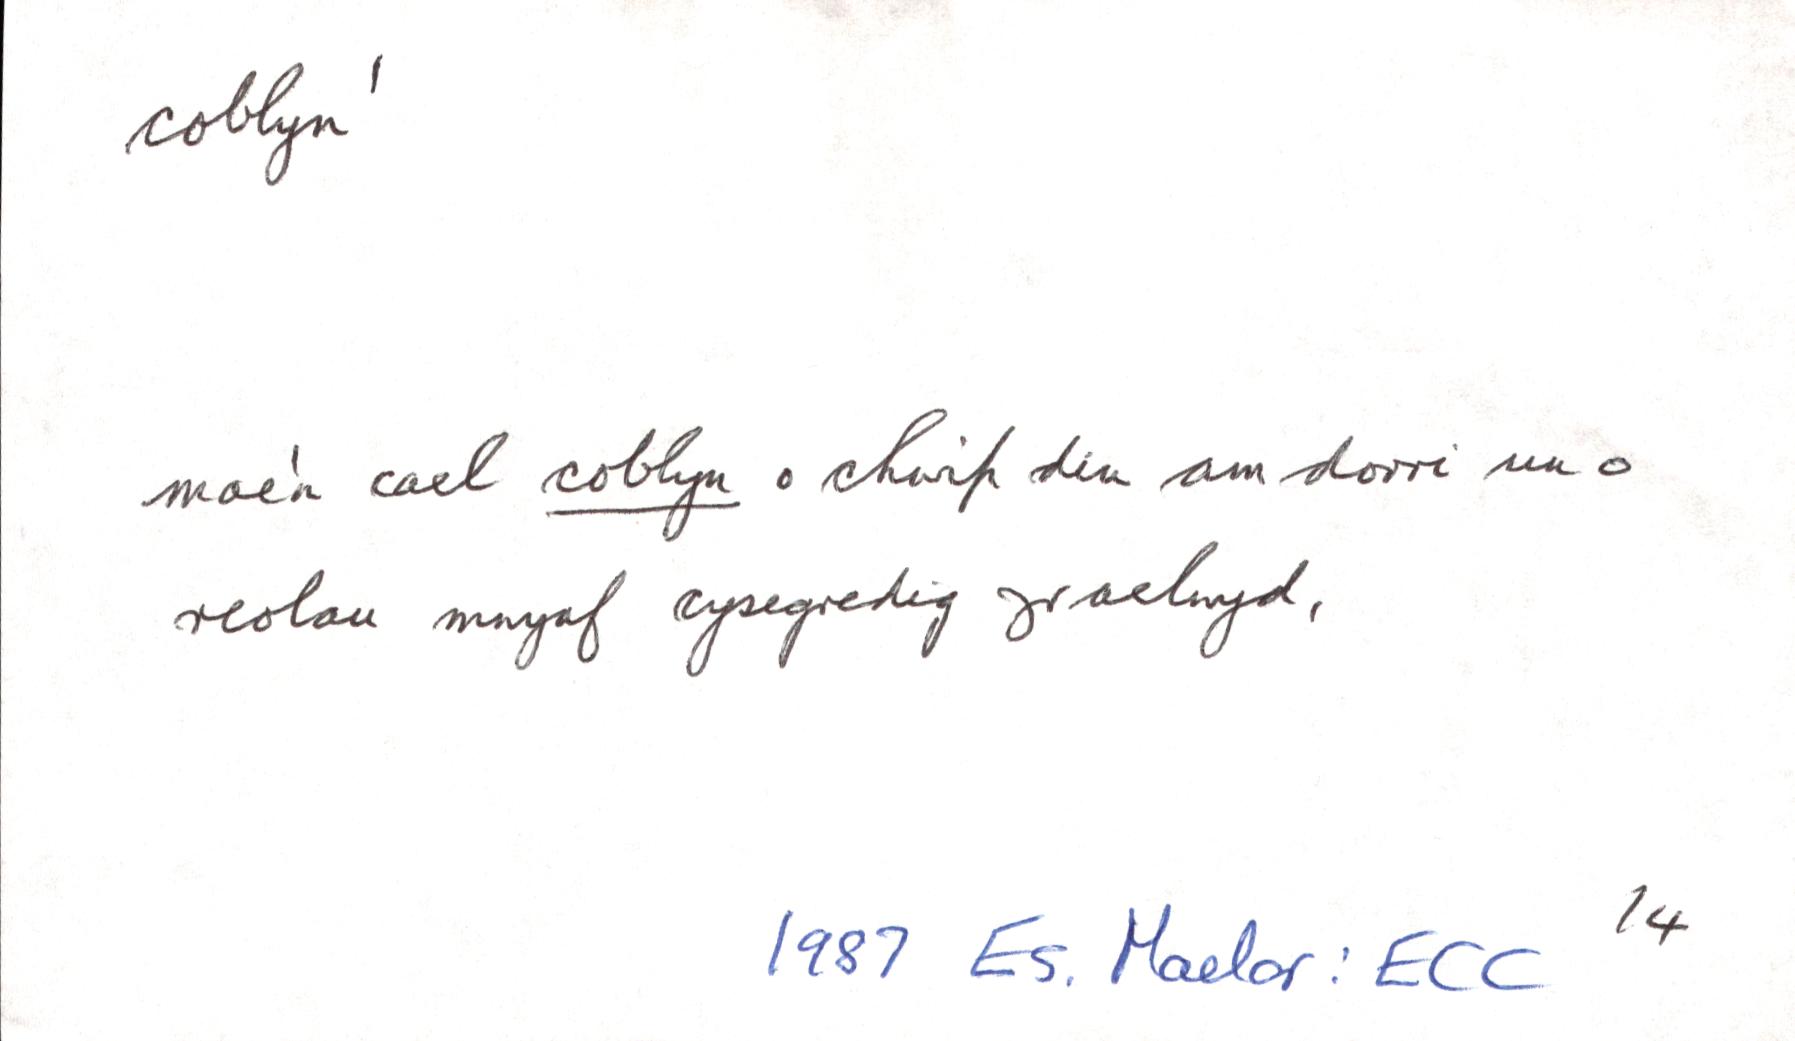 coblyn'
mae'n cael coblyn o chwip din am dorri un o
reolau mwyaf cysegredig yr aelwyd.
14
1987 Es. Maelor: ECC